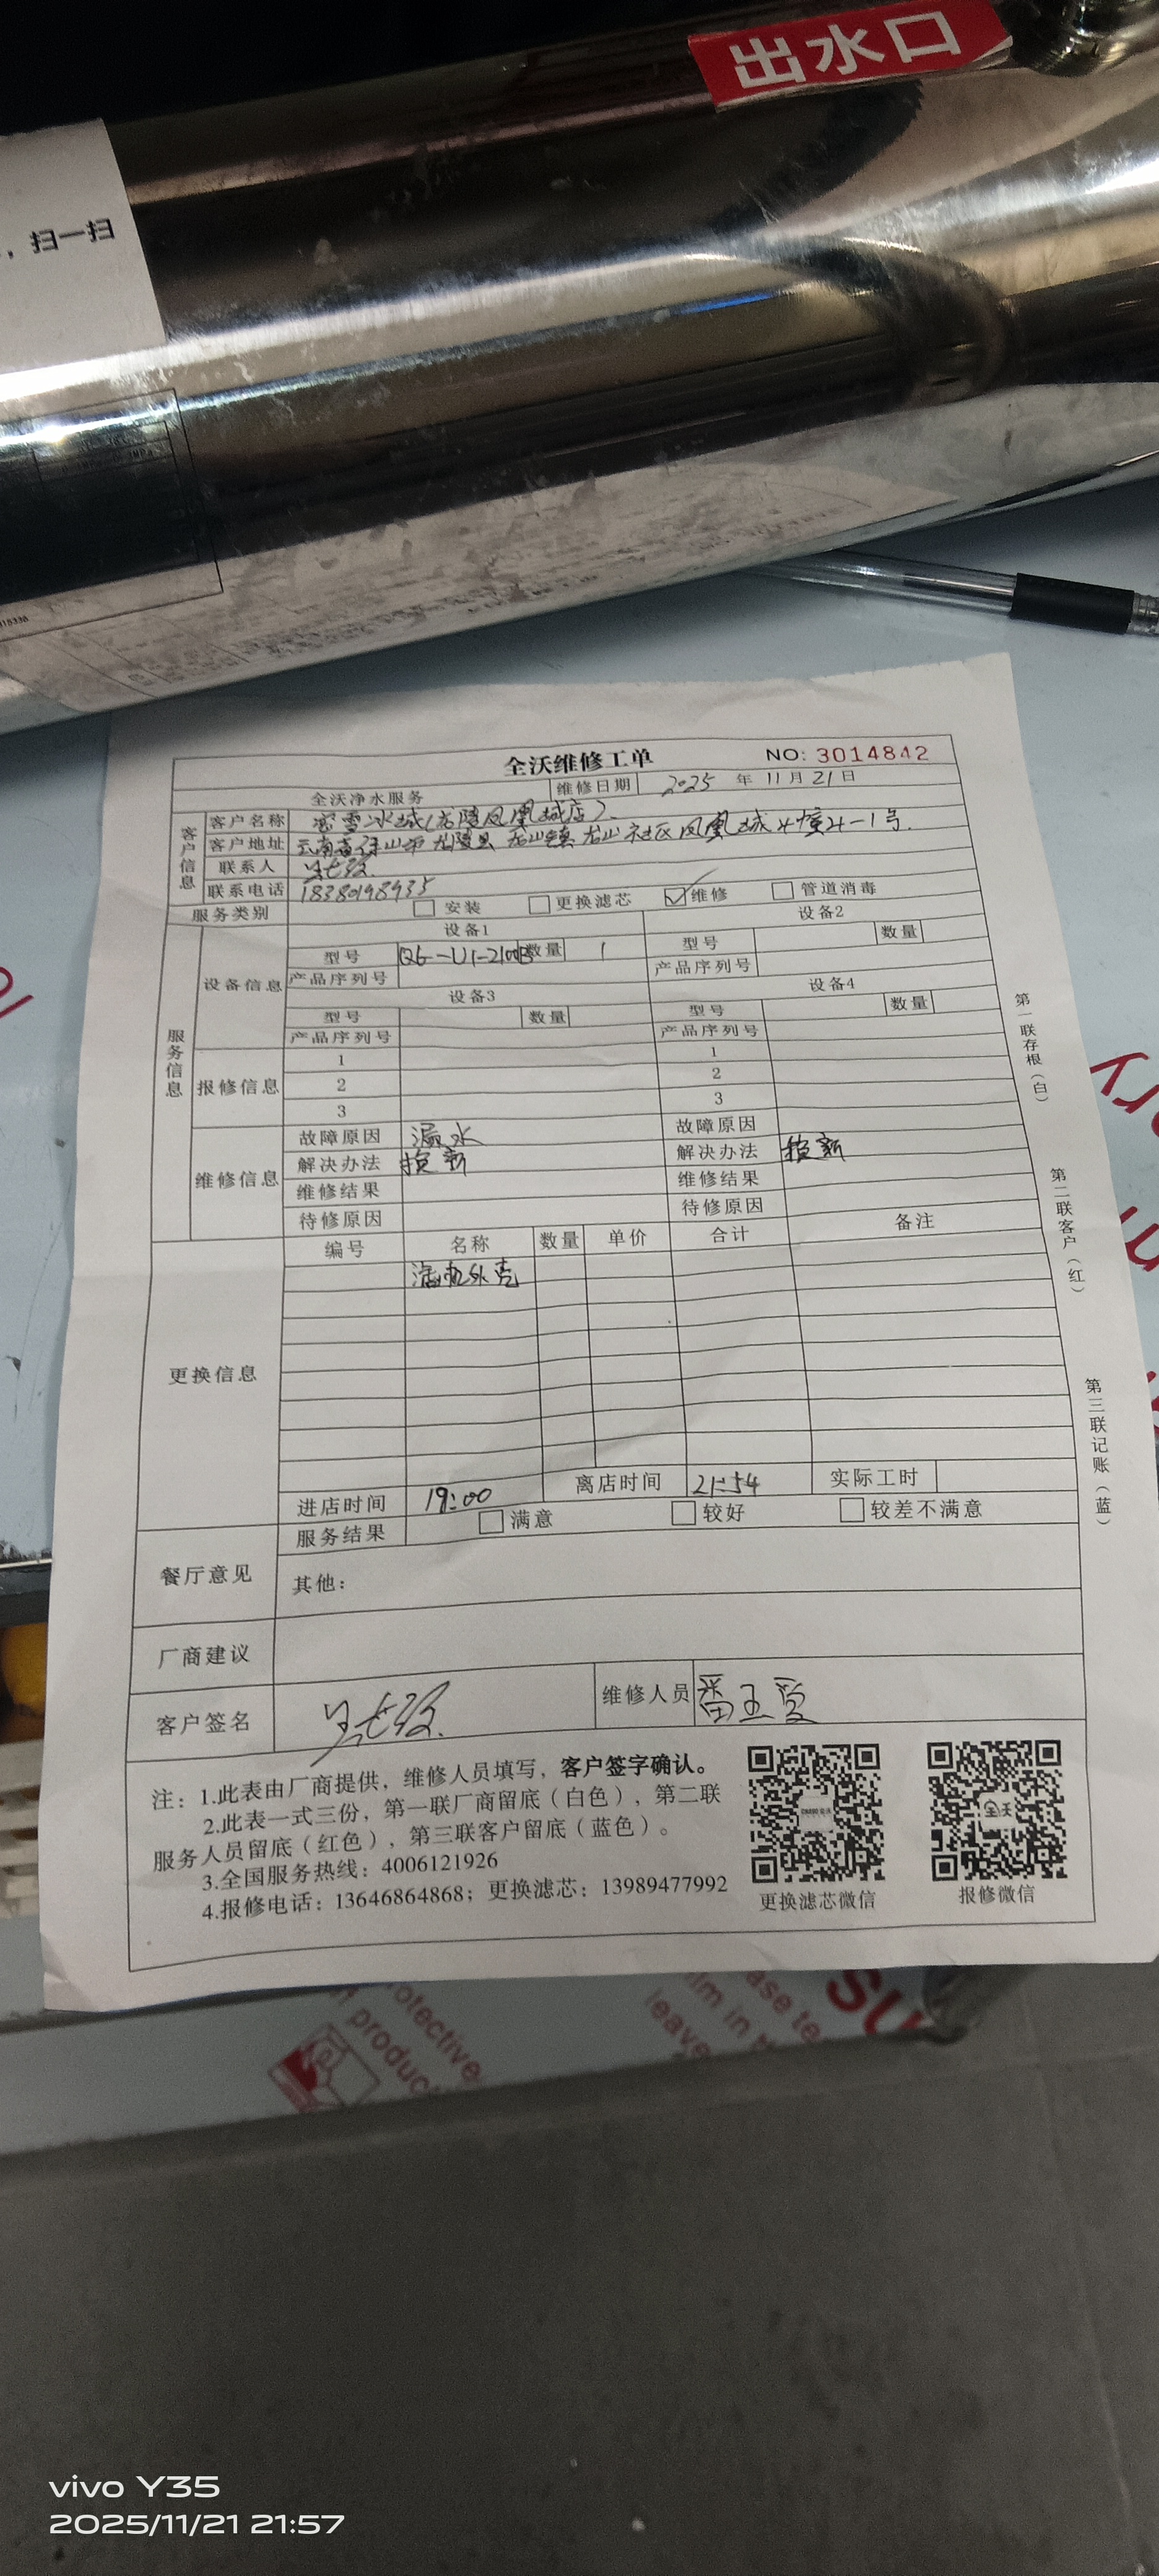 出水口
，扫一扫
全沃维修工单 NO: 3014842
全沃净水服务 维修日期 2025 年 11 月 21 日
客户信息
客户名称 蜜雪冰城(龙陵凤凰城店).
客户地址 云南省保山市龙陵县龙山镇龙山社区凤凰城4幢4-1号.
联系人
联系电话 18380198935
服务类别 安装 更换滤芯 维修 管道消毒
服务信息
设备信息 设备1 设备2
型号 数量 1 型号 数量
产品序列号 产品序列号
设备3 设备4
型号 数量 型号 数量
产品序列号 产品序列号
报修信息 1 1
2 2
3 3
维修信息 故障原因 漏水 故障原因
解决办法 换新 解决办法 换新
维修结果 维修结果
待修原因 待修原因
更换信息 编号 名称 数量 单价 合计 备注
外壳
进店时间 19:00 离店时间 21:54 实际工时
餐厅意见 服务结果 满意 较好 较差不满意
其他：
厂商建议
客户签名 维修人员
注：1.此表由厂商提供，维修人员填写，客户签字确认。
2.此表一式三份，第一联厂商留底（白色），第二联
服务人员留底（红色），第三联客户留底（蓝色）。
3.全国服务热线：4006121926
4.报修电话：13646864868；更换滤芯：13989477992
更换滤芯微信 报修微信
第一联存根（白）
第二联客户（红）
第三联记账（蓝）
vivo Y35
2025/11/21 21:57